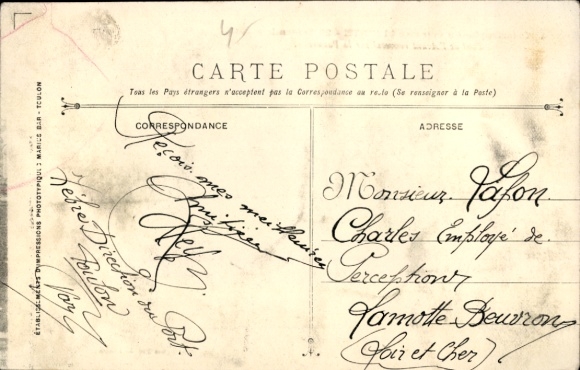 CARTE POSTALE
Tous les Pays étrangers n'acceptent pas la Correspondance au recto (Se renseigner à la Poste)
CORRESPONDANCE
ADRESSE
Reçois mes meilleures
Direction du Port
Toulon
Var
Monsieur Lafon
Charles Employé de
Perception
Lamotte Beuvron
(Loir et Cher)
ÉTABLISSEMENTS D'IMPRESSIONS PHOTOTYPIQUES MARIUS BAR - TOULON